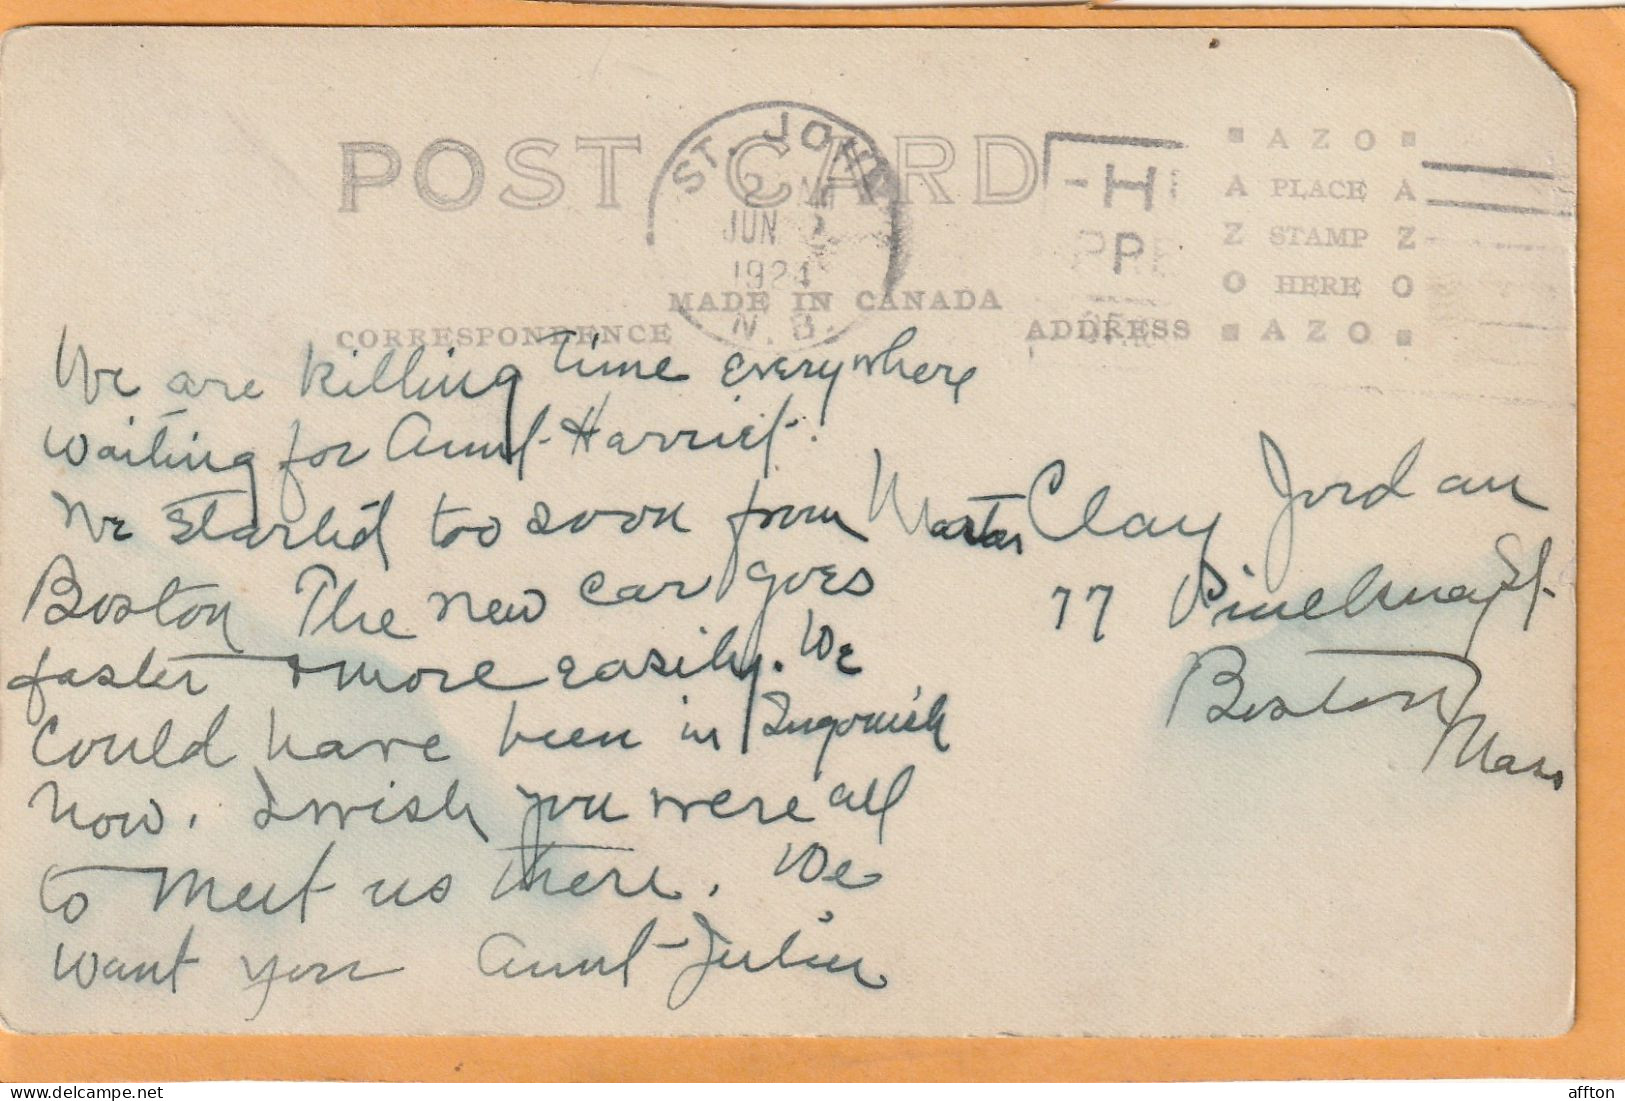 POST CARD
ST. JOHN
2
JUN 2
1924
N.B.
AZO
PLACE
STAMP
HERE
AZO
MADE IN CANADA
CORRESPONDENCE
ADDRESS
We are killing time everywhere
waiting for Aunt Harriet.
We started too soon from
Boston The new car goes
faster & more easily. We
could have been in Ingonish
now. I wish you were all
to meet us there. We
want you Aunt Julia
Master Clay Jordan
77 Pinckney St.
Boston
Mass
affton